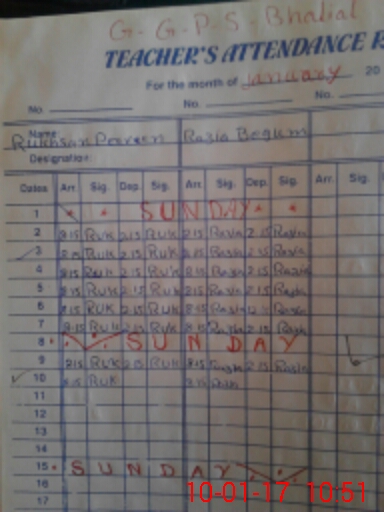 G. G. P. S. Bhalial
TEACHER'S ATTENDANCE R
For the month of January 20
No. No. No.
Name Rukhsan Parveen Razia Begum
Designation
Dates Arr. Sig. Dep. Sig. Arr. Sig. Dep. Sig. Arr. Sig.
1 SUNDAY
2 8:15 RUK 2:15 RUK 8:15 Razia 2:15 Razia
3 8:15 RUK 2:15 RUK 8:15 Razia 2:15 Razia
4 8:15 RUK 2:15 RUK 8:15 Razia 2:15 Razia
5 8:15 RUK 2:15 RUK 8:15 Razia 2:15 Razia
6 8:15 RUK 2:15 RUK 8:15 Razia 2:15 Razia
7 8:15 RUK 2:15 RUK 8:15 Razia 2:15 Razia
8 SUNDAY
9 8:15 RUK 2:15 RUK 8:15 Razia 2:15 Razia
10 8:15 RUK 8:15 Razia
11
12
13
14
15 SUNDAY
16
17
10-01-17 10:51